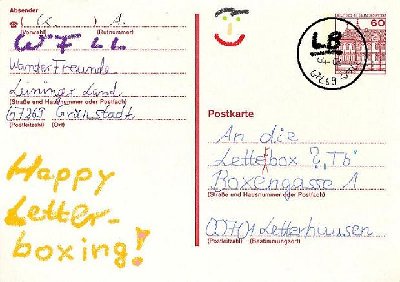 Absender
(Vorwahl) (Rufnummer)
WFLL
WanderFreunde
Leininger Land
(Straße und Hausnummer oder Postfach)
67269 Grünstadt
(Postleitzahl) (Ort)
Happy
Letter-
boxing!
DEUTSCHE BUNDESPOST
60
LB
Postkarte
An die
Letterbox
Boxengasse 1
(Straße und Hausnummer oder Postfach)
Letterhausen
(Postleitzahl) (Bestimmungsort)